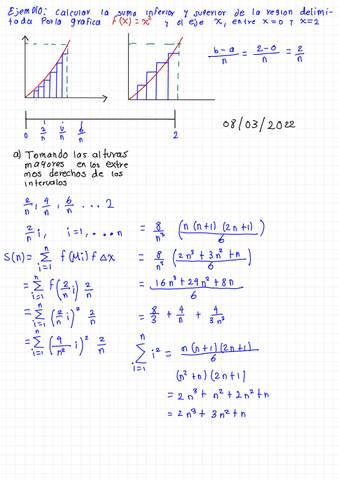 Ejemplo: Calcular la suma inferior y superior de la region delimi-
tada Por la grafica f(x) = x² y el eje x, entre x=0 y x=2
b-a/n = 2-0/n = 2/n
0 2/n 4/n 6/n 2
08/03/2022
a) Tomando las alturas
mayores en los extre
mos derechos de los
intervalos
2/n, 4/n, 6/n ... 2
2/n i, i=1, ... n
S(n) = n Σ i=1 f(Mi) f Δx
= n Σ i=1 f(2/n i) 2/n
= n Σ i=1 (2/n i)² 2/n
= n Σ i=1 (4/n² i)² 2/n
= 8/n³ (n(n+1)(2n+1)/6)
= 8/n³ (2n³ + 3n² + n/6)
= 16n³ + 24n² + 8n/6
= 8/3 + 4/n + 4/3n²
n Σ i=1 i² = n(n+1)(2n+1)/6
(n²+n)(2n+1)
= 2n³ + n² + 2n² + n
= 2n³ + 3n² + n